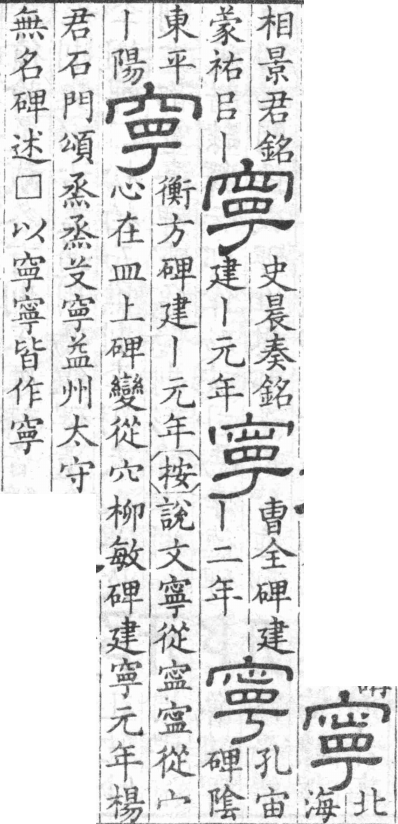 寧
北
海
相景君銘
蒙祐㠯丨
寧
史晨奏銘
建丨元年
寧
曹全碑建
丨二年
寧
孔宙
碑陰
東平
丨陽
寧
衡方碑建丨元年按說文寧從寍寍從宀
心在皿上碑變從穴柳敏碑建寧元年楊
君石門頌烝烝艾寧益州太守
無名碑述□以寧寧皆作寧